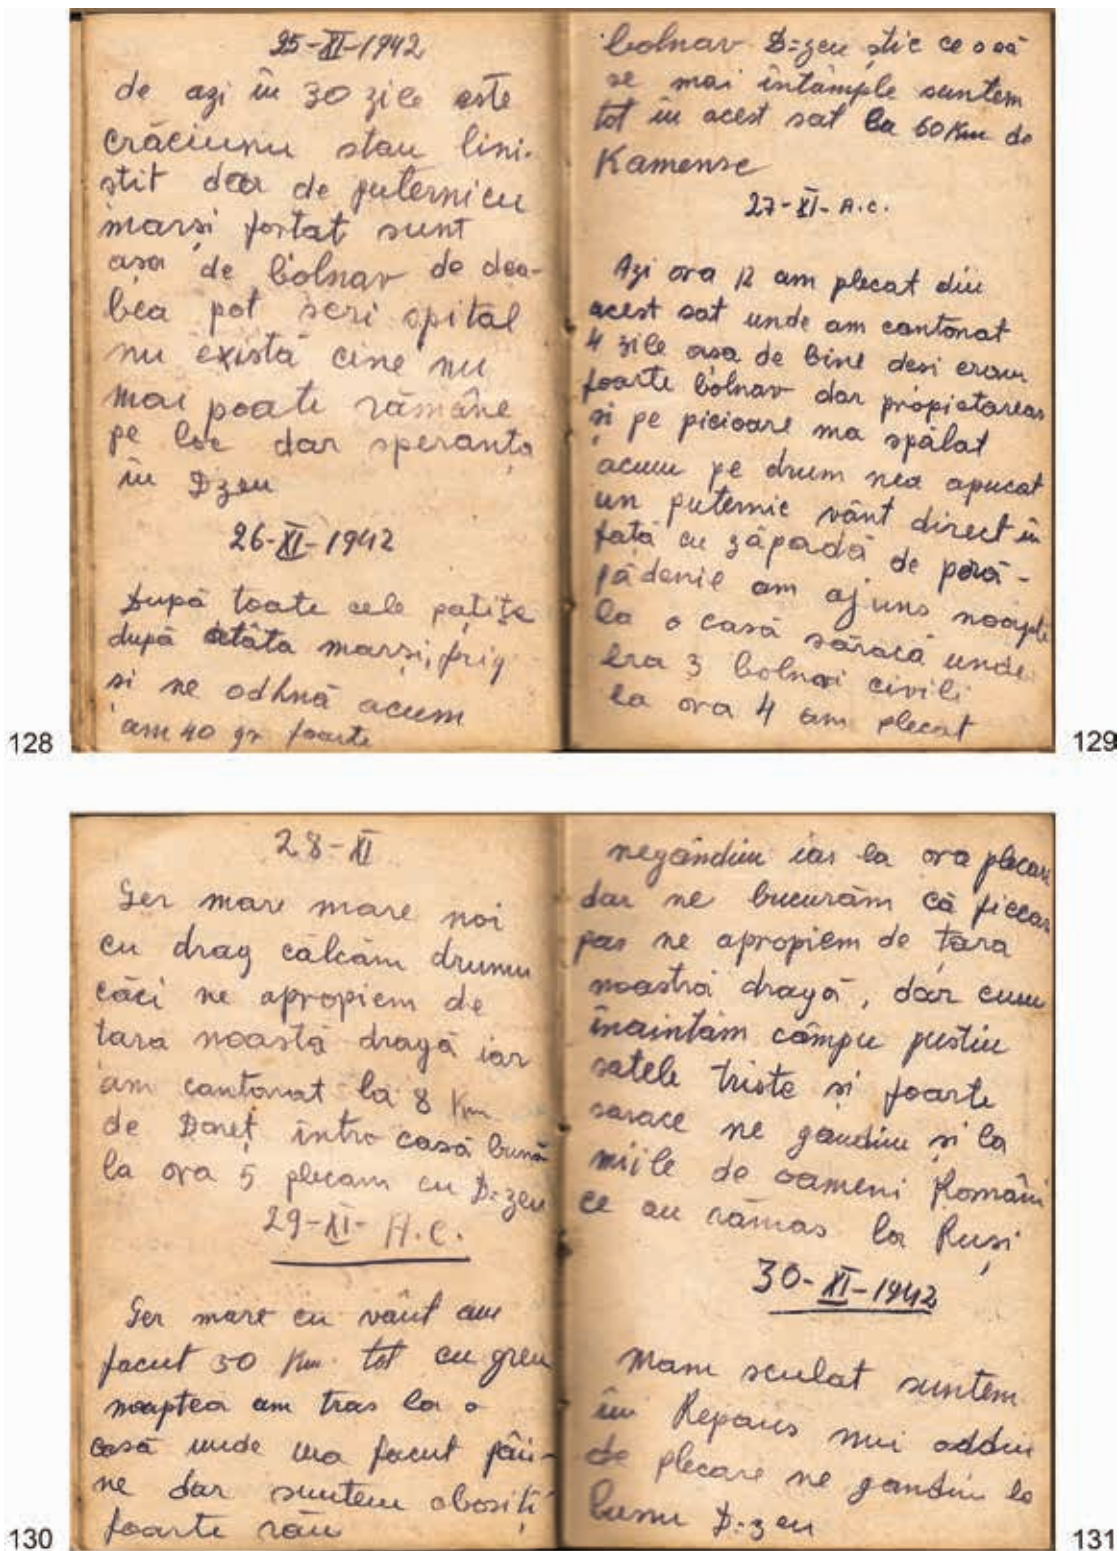 25-XI-1942
de azi în 30 zile este
crăciunu stau lini-
știt dar de puternicu
marși fortat sunt
așa de bolnav de dea-
bea pot scri spital
nu există cine nu
mai poate rămâne
pe loc dar speranța
în Dzeu
26-XI-1942
După toate cele pațite
după atâta marși, frig
și ne odhnă acum
am 40 gr foarte
128
bolnav D=zeu știe ce o să
se mai întâmple suntem
tot în acest sat la 60 Km de
Kamensc
27-XI-A.C.
Azi ora 12 am plecat din
acest sat unde am cantonat
4 zile așa de bine desi eram
foarte bolnav dar propietareas
și pe picioare ma spălat
acum pe drum nea apucat
un puternic vânt direct în
fată cu zăpadă de
am ajuns noapte
la o casă săracă unde
era 3 bolnavi civili
la ora 4 am plecat
129
28-XI
Ger mare mare noi
cu drag călcăm drumu
căci ne apropiem de
țara noastă dragă iar
am cantonat la 8 Km
de Doneț intro casă bună
la ora 5 plecam cu D=zeu
29-XI- A.C.
Ger mare cu vânt am
facut 30 Km tot cu greu
noaptea am tras la o
casă unde facut pâi-
ne dar suntem obosiți
foarte rău
130
negândim iar la ora plecari
dar ne bucurăm că fiecar
pas ne apropiem de țara
noastră dragă, dar cum
înaintăm câmpu pustiu
satele triste și foarte
sarace ne gandim și la
miile de oameni Români
ce au rămas la Ruși
30-XI-1942
Mam sculat suntem
în Repaus nui oddin
de plecare ne gandim la
bunu D-zeu
131